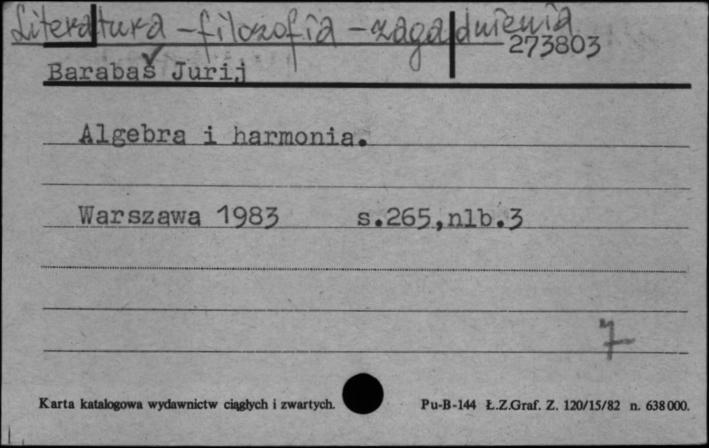 Literatura - filozofia - zagadnienia
273803
Barabaš Jurij
Algebra i harmonia.
Warszawa 1983 s.265,nlb.3
7
Karta katalogowa wydawnictw ciągłych i zwartych. Pu-B-144 Ł.Z.Graf. Z. 120/15/82 n. 638000.